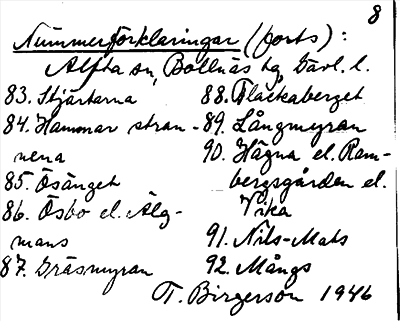 8
Nummerförklaringar (forts):
Alfta sn, Bollnäs tg, Gävl. l.
83. Stjärtarna
84. Hammar stran-
nena
85. Ösänget
86. Ösbo el. Älg-
mans
87. Gräsmyran
88. Fläckaberget
89. Långmyran
90. Hägna el. Ram-
bergsgården el.
Vika
91. Nils-Mats
92. Mångs
T. Birgerson 1946